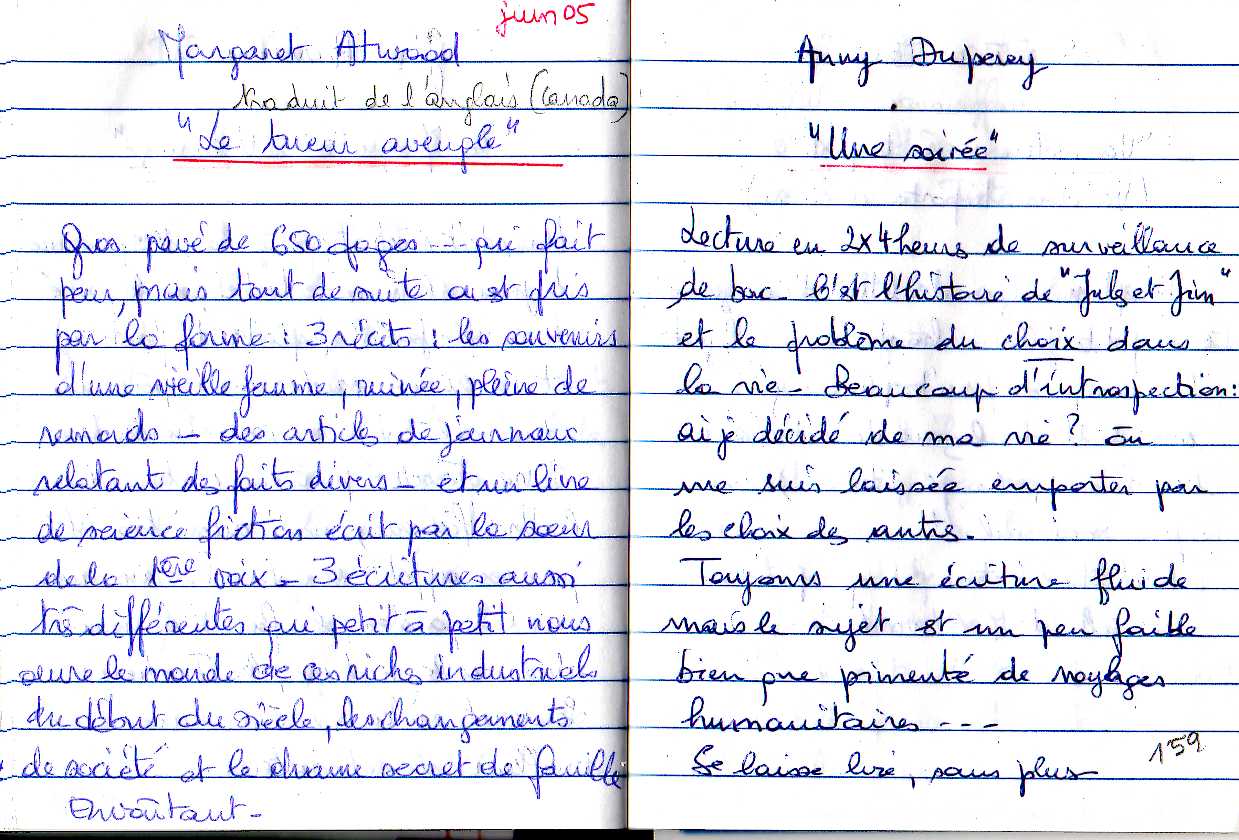 juin 05
Margaret Atwood
traduit de l'anglais (Canada)
"Le tueur aveugle"
Gros pavé de 650 pages --- qui fait
peur, mais tout de suite on est pris
par la forme : 3 récits : les souvenirs
d'une vieille femme, ruinée, pleine de
remords - des articles de journaux
relatant des faits divers - et un livre
de science fiction écrit par la soeur
de la 1ère voix - 3 écritures aussi
très différentes qui petit à petit nous
ouvre le monde de ces riches industriels
du début du siècle, les changements
de société et le drame secret de famille
Envoûtant -
Anny Duperey
"Une soirée"
Lecture en 2x4 heures de surveillance
de bac - C'est l'histoire de "Jules et Jim"
et le problème du choix dans
la vie - Beaucoup d'introspection :
ai je décidé de ma vie ? ou
me suis laissée emporter par
les choix des autres.
Toujours une écriture fluide
mais le sujet est un peu faible
bien que pimenté de voyages
humanitaires ---
Se laisse lire, sans plus
159